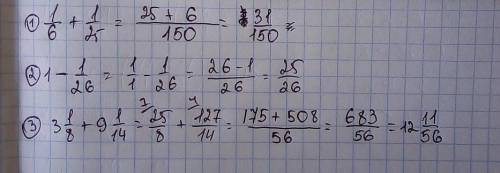 ① 1/6 + 1/25 = (25 + 6)/150 = 31/150 =
② 1 - 1/26 = 1/1 - 1/26 = (26 - 1)/26 = 25/26
③ 3 1/8 + 9 1/14 = 25/8 ⁷ + 127/14 ⁴ = (175 + 508)/56 = 683/56 = 12 11/56